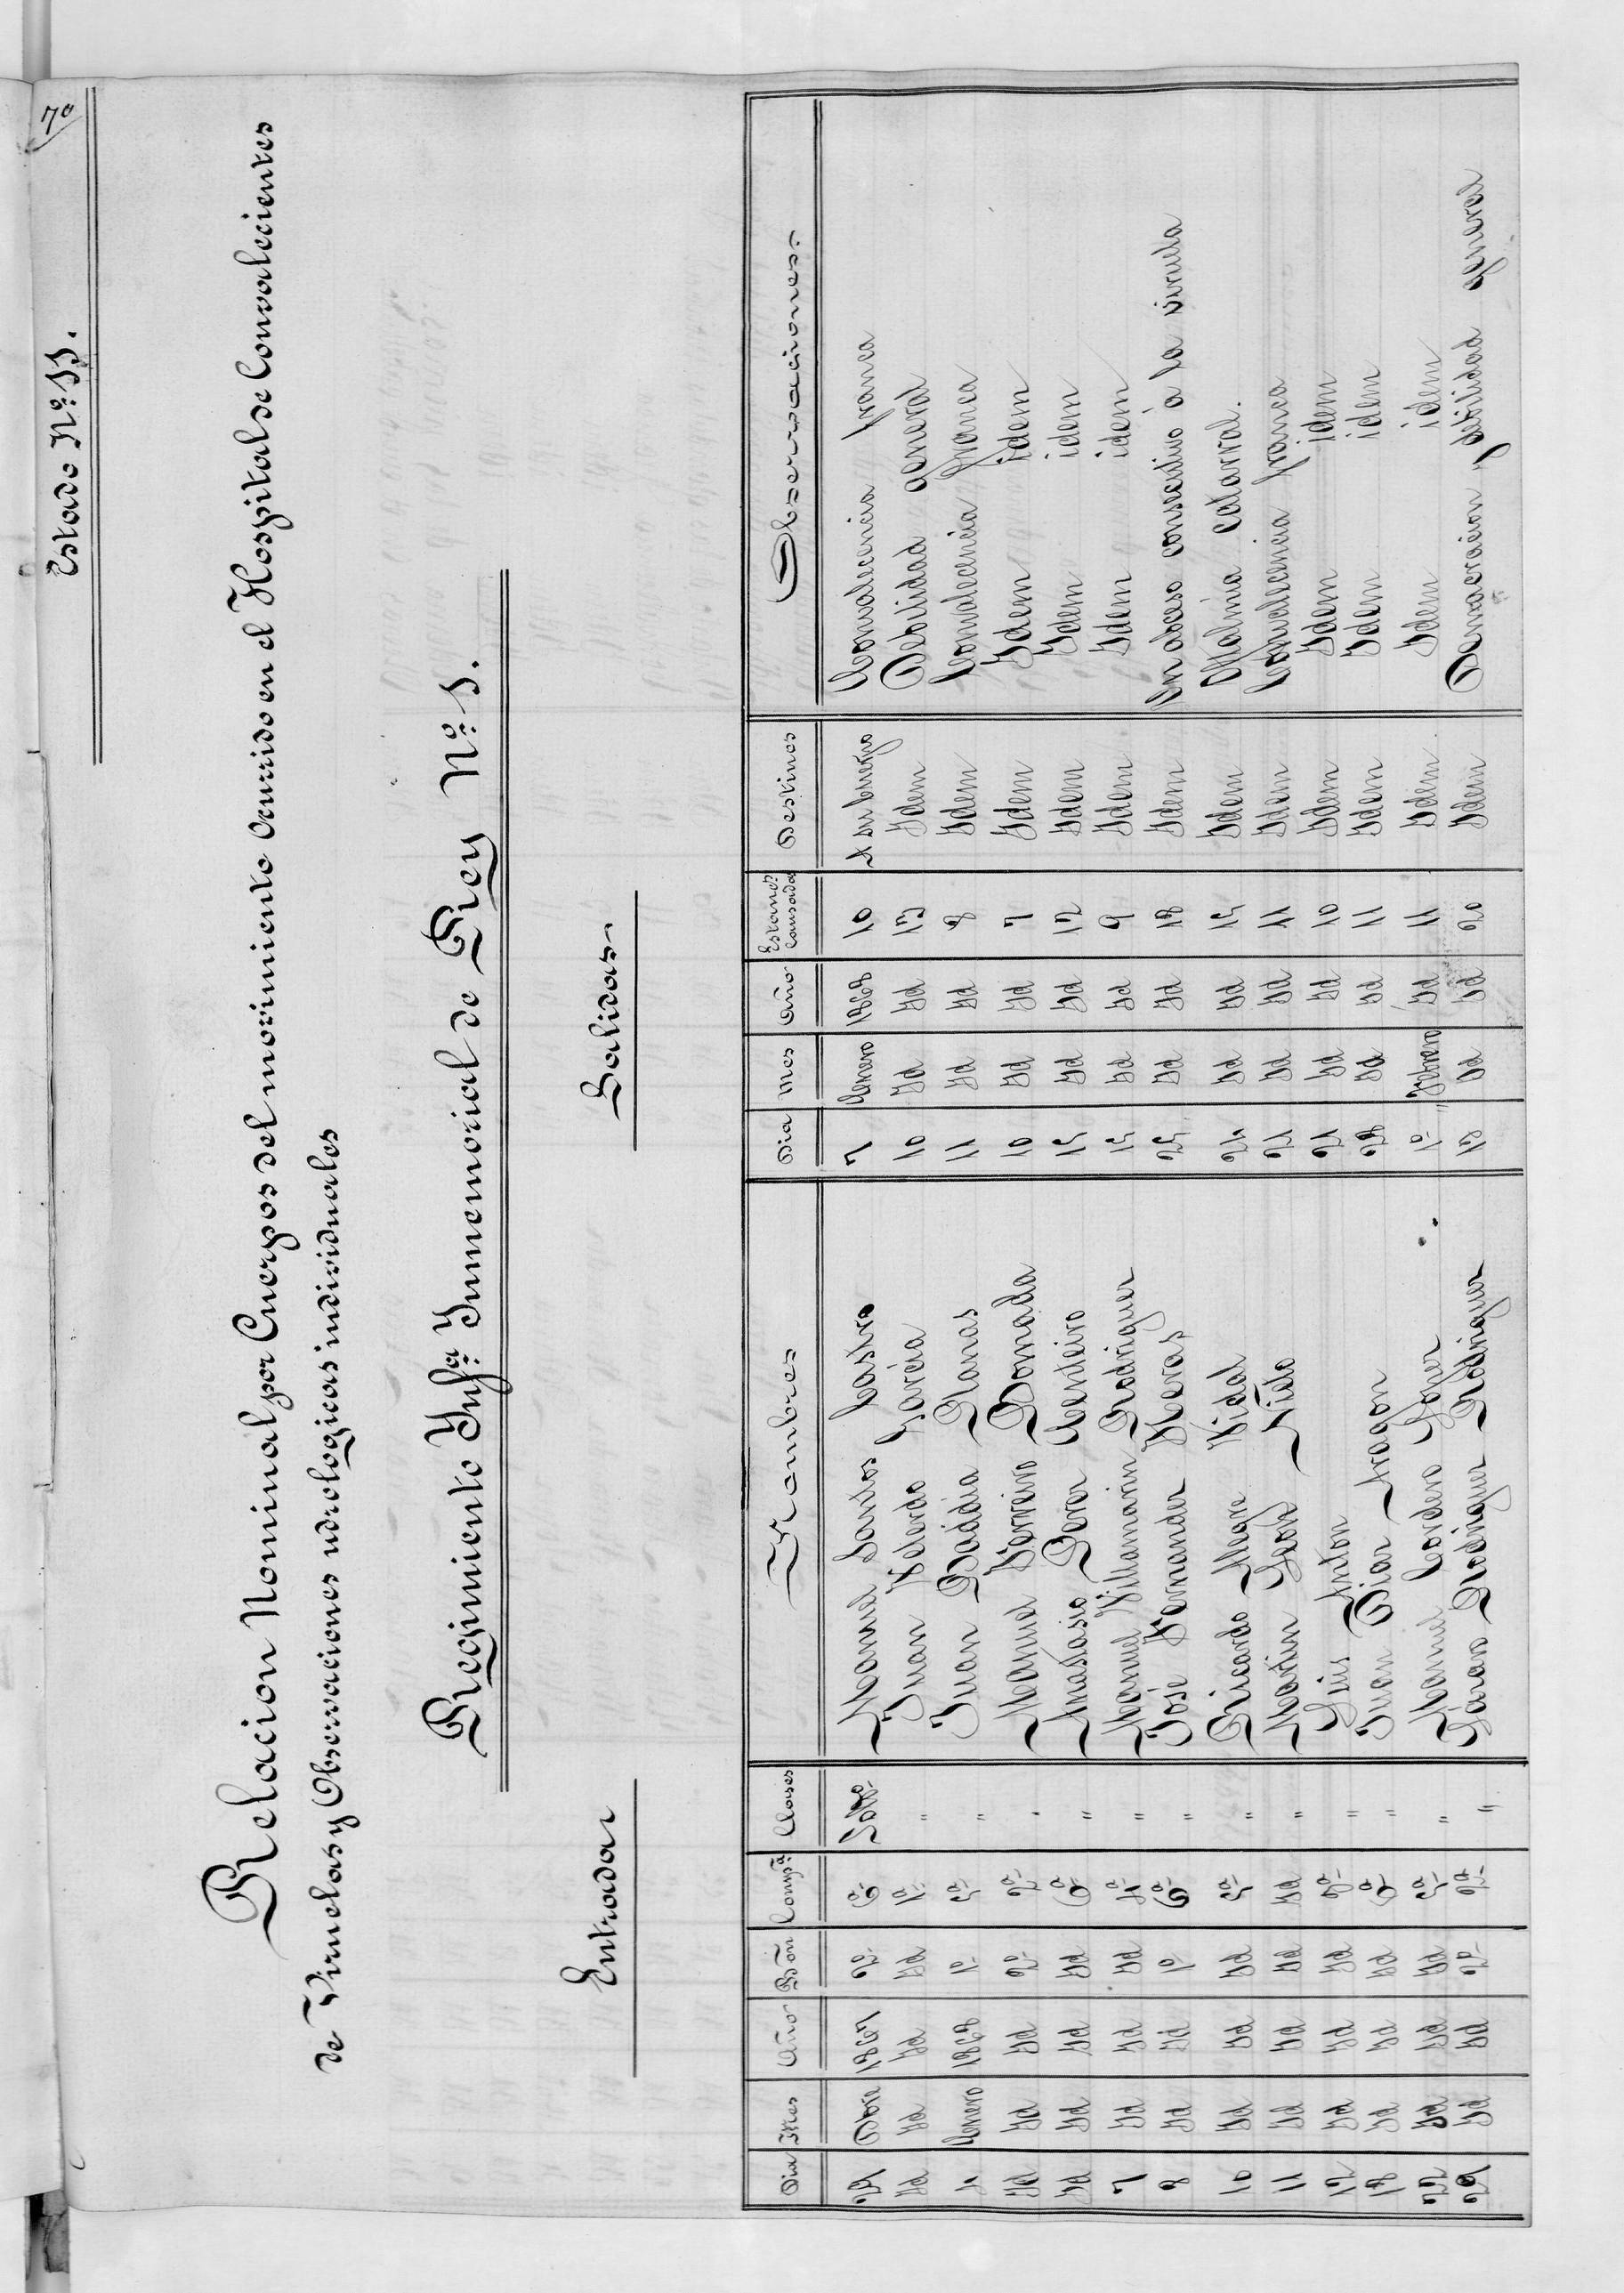 70
Estado Nº. 11.
Relacion Nominal por Cuerpos del movimiento Ocurrido en el Hospital de Convalecientes
de Viruelas y Observaciones udrologicas individuales
Regimiento Ynfª. Ynmemorial de Rey Nº. 1.
Entradas Salidas
Dia Mes Año Bºon Compª. Clases Nombres Dia Mes Año Estancs. Causadas Destinos Observaciones
29 Dbre 1867 2º 6ª Soldº. Manuel Santos Castro 7 Enero 1868 10 A su cuerpo Convalecencia franca
Yd Yd Yd Yd 1ª " Juan Velerda Garcia 10 Yd Yd 13 Ydem Debilidad general
4 Enero 1868 1º 5ª " Juan Daddia Planas 11 Yd Yd 8 Ydem Convalecencia franca
Yd Yd Yd 2º 2ª " Manuel Ferreiro Bornada 10 Yd Yd 7 Ydem Ydem idem
Yd Yd Yd Yd 6ª " Anastasio Perez Centeiro 15 Yd Yd 12 Ydem Ydem idem
7 Yd Yd Yd 4ª " Manuel Villamarin Rodriguez 15 Yd Yd 9 Ydem Ydem idem
8 Yd Yd 1º 6ª " José Fernandez Heras 25 Yd Yd 18 Ydem Un abceso consectivo á la viruela
10 Yd Yd Yd 5ª " Ricardo Alegre Vidal 24 Yd Yd 15 Ydem Oftalmia catarral.
11 Yd Yd Yd Yd " Martin Leon Nieto 21 Yd Yd 11 Ydem Convalecencia franca
12 Yd Yd Yd 3ª " Luis Anton 21 Yd Yd 10 Ydem Ydem idem
18 Yd Yd Yd 6ª " Juan Diaz Aragon 28 Yd Yd 11 Ydem Ydem idem
22 Yd Yd Yd 5ª " Manuel Cordero Lopez 1º Febrero Yd 11 Ydem Ydem idem
29 Yd Yd 2º 2ª " Lazaro Rodriguez Rodriguez 13 Yd Yd 20 Ydem Demacracion y debilidad general